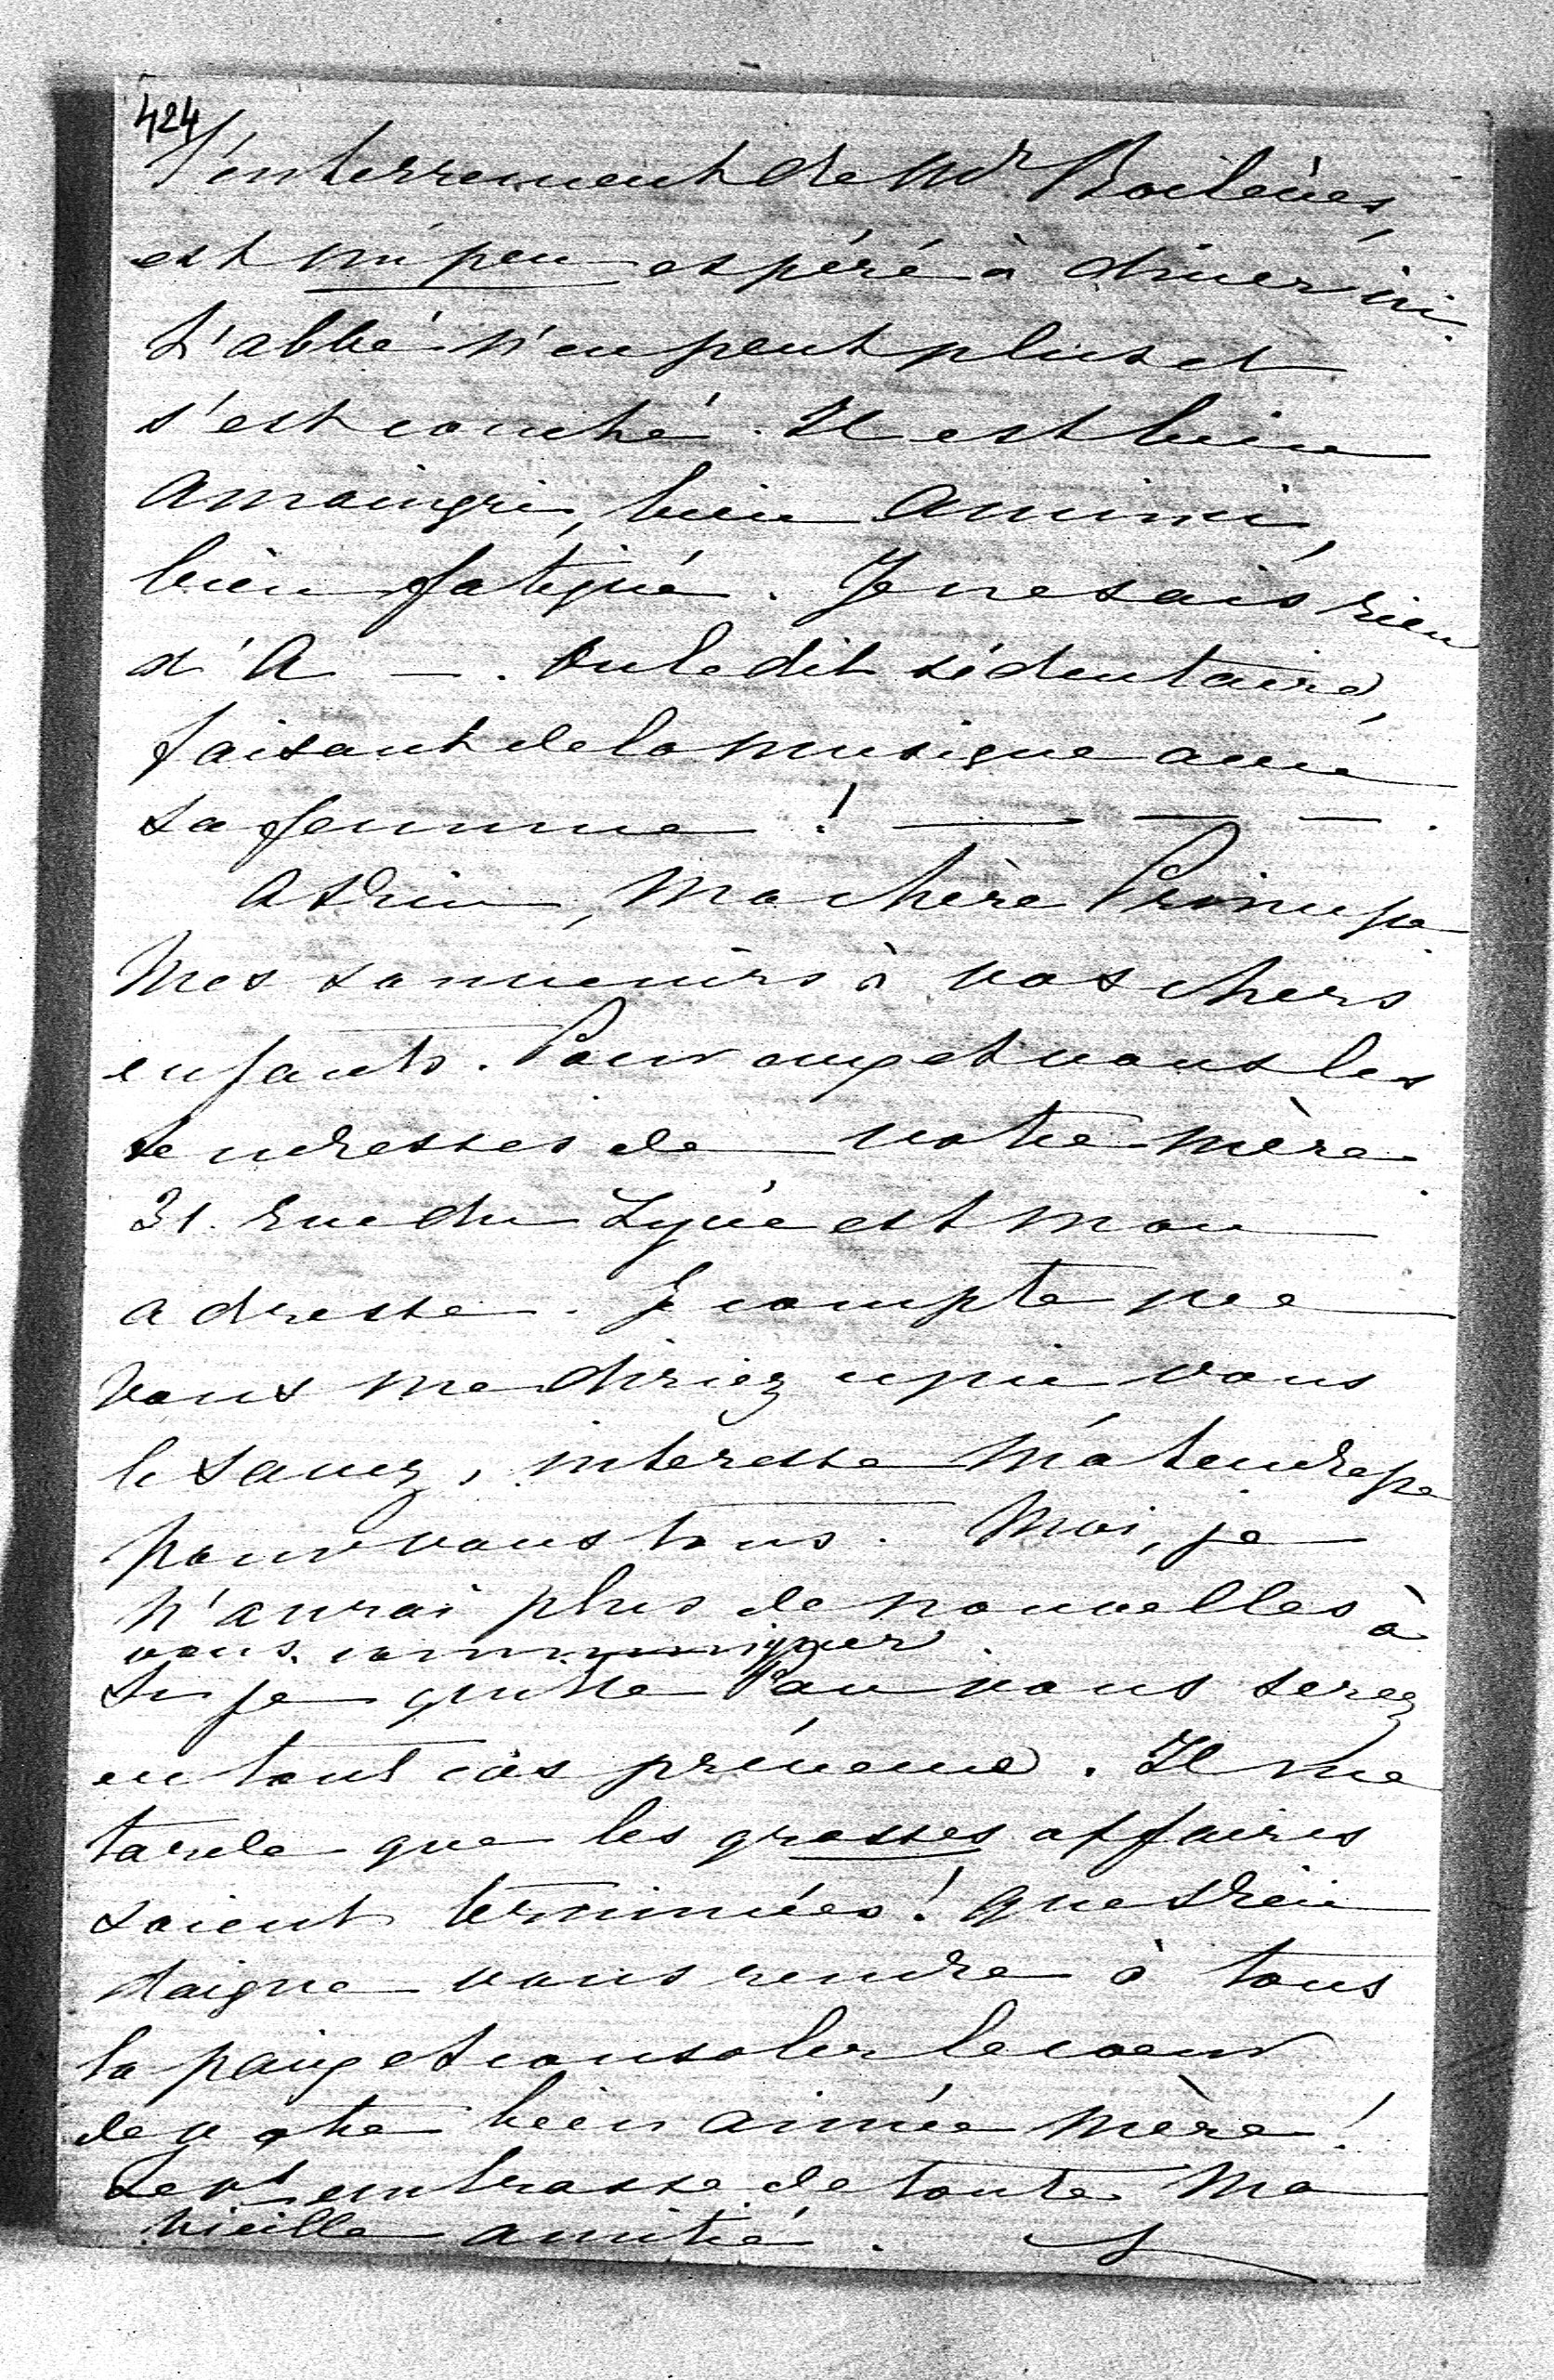 424
l'enterrement de Mr
est un peu espéré à diner ici.
L'abbé n'en peut plus et
s'est couché. Il est bien
amaigri, bien aminci,
bien fatigué. Je ne sais rien
d'A —. On le dit sédentaire,
faisant de la musique avec
sa femme ! — — — .
Adieu, ma chère Princesse
Mes souvenirs à vos chers
enfants. Pour eux et vous les
tendresses de votre mère.
31. rue du Lycée est mon
adresse. Je compte que
vous me diriez ce qui vous
le savez, interesse ma tendresse
pour vous tous. Moi, je
n'aurai plus de nouvelles à
vous communiquer.
Si je quitte Pau vous serez
en tout cas prévenue. Il me
tarde que les grosses affaires
soient terminées ! Que Dieu
daigne vous rendre à tous
la paix et consoler le coeur
de votre bien aimée mère !
Je vs embrasse de toute ma
vieille amitié.